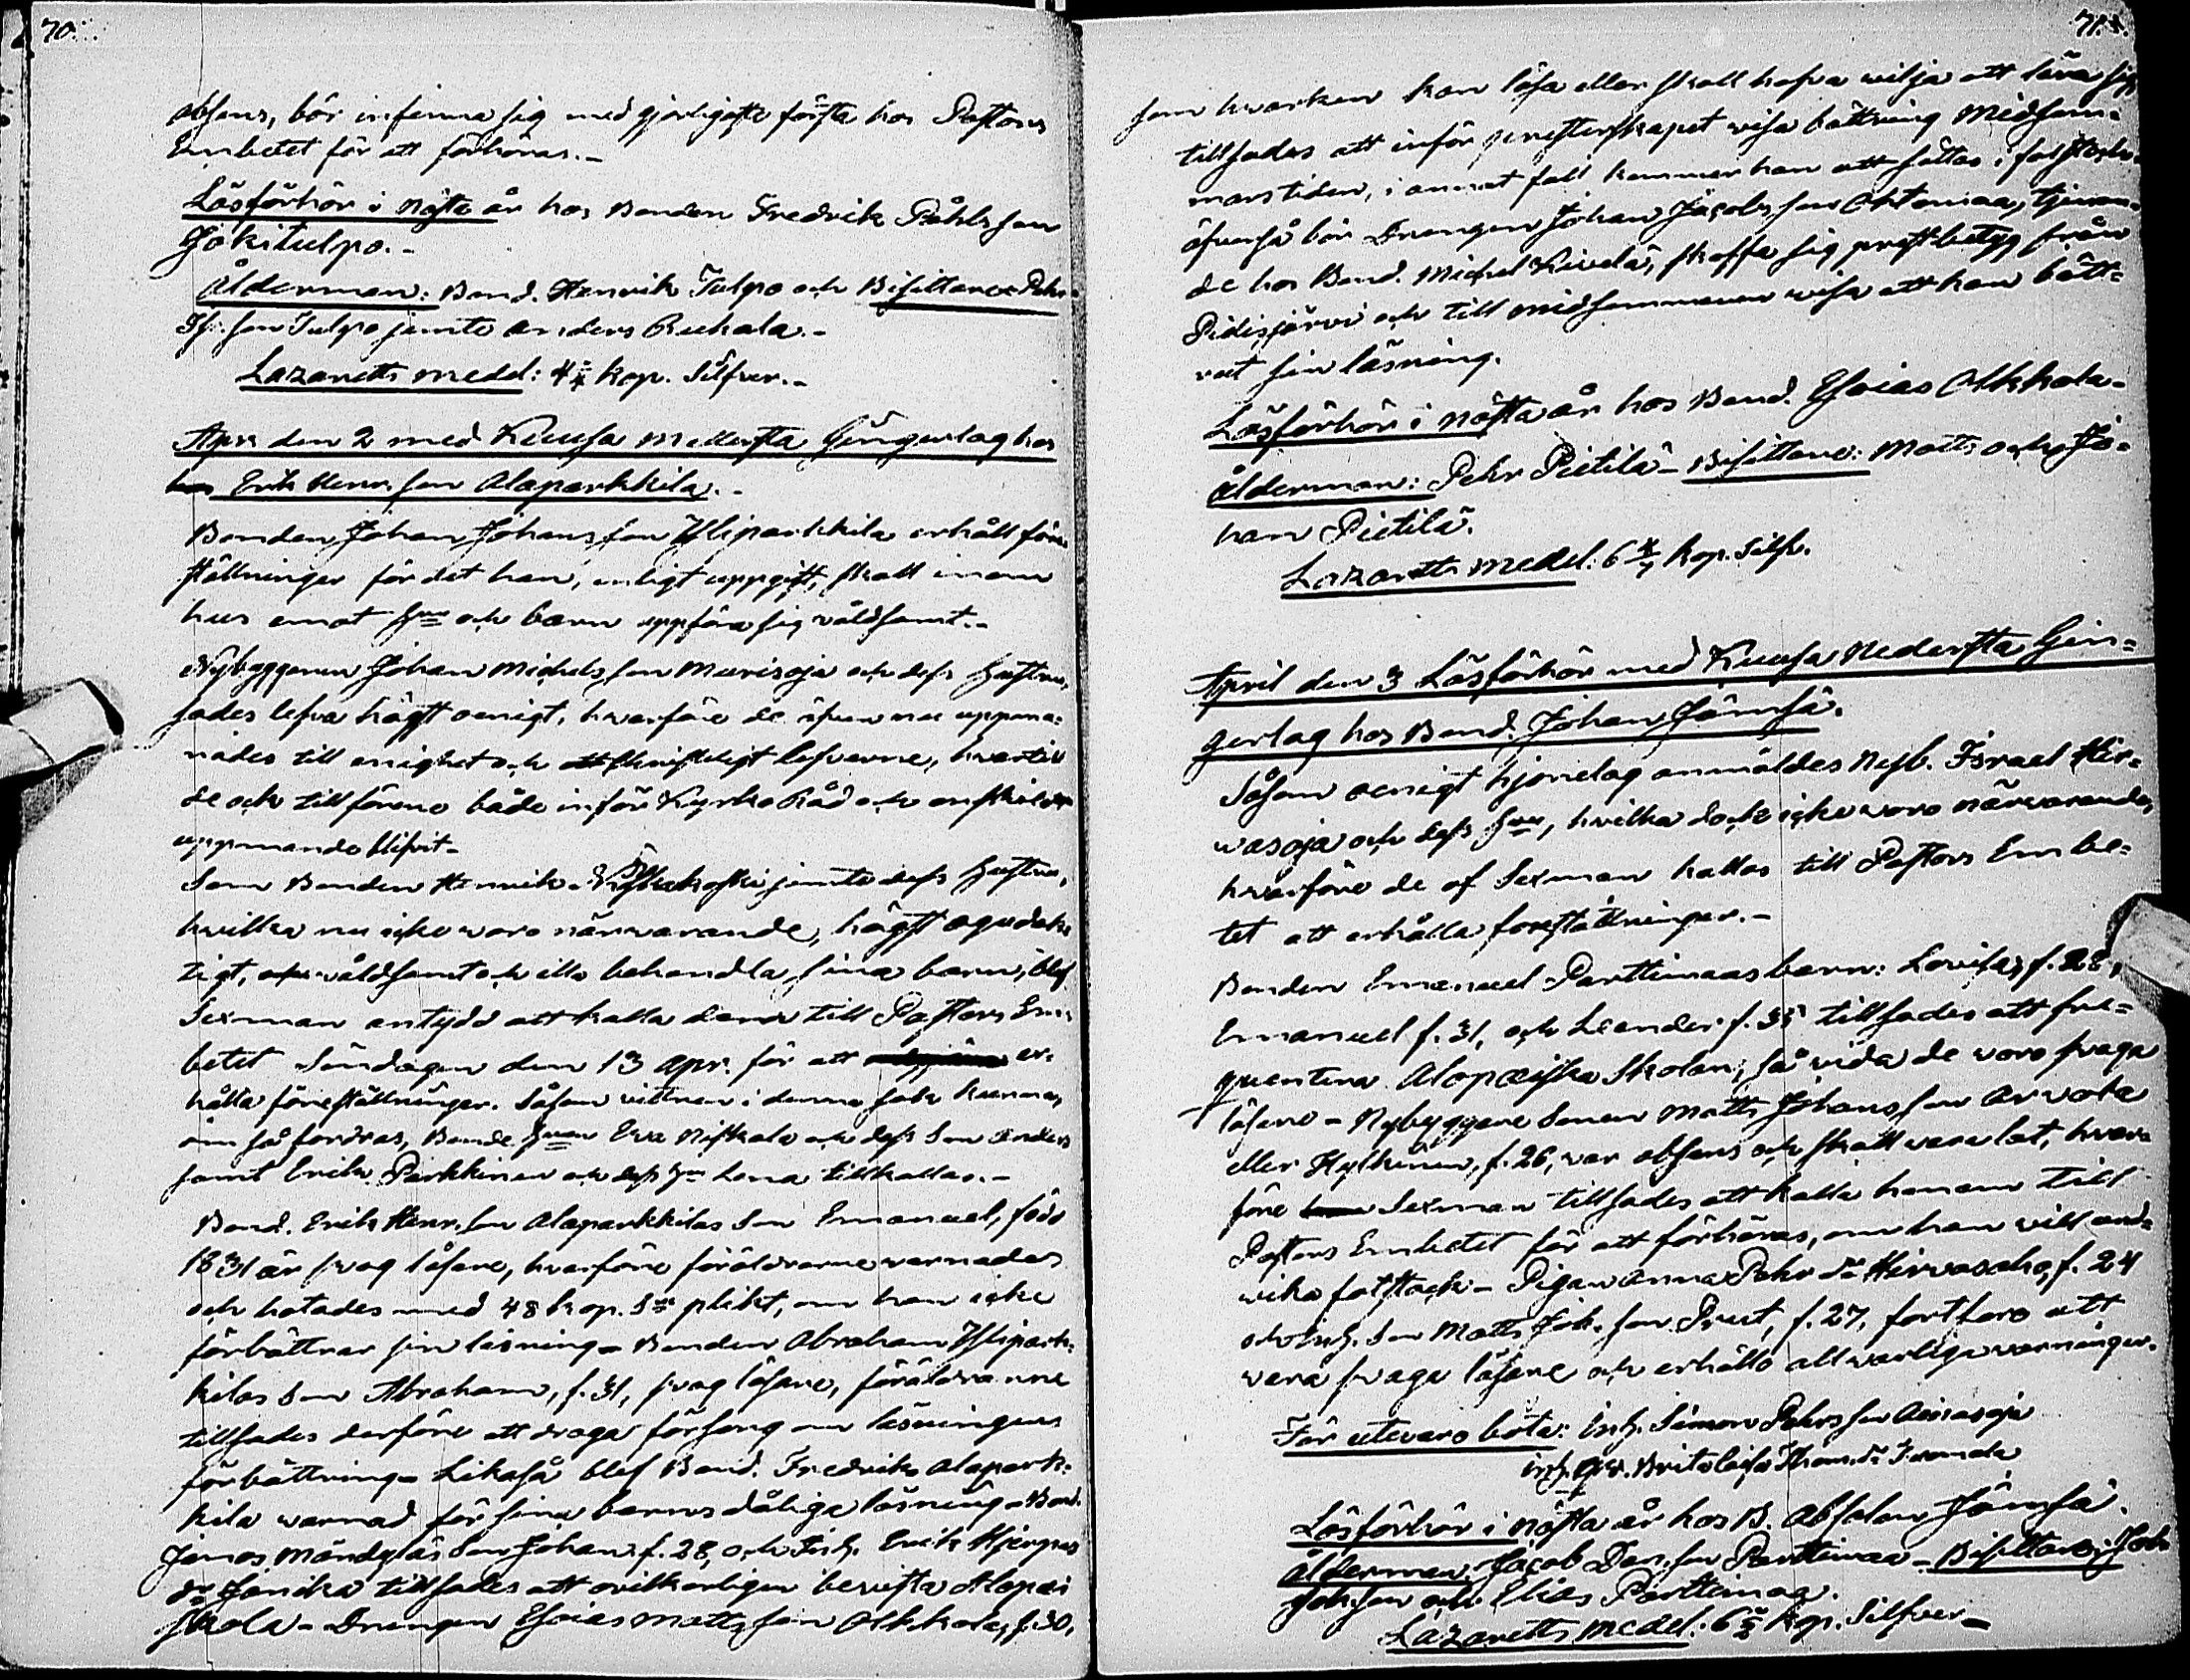 70.
absens, bör infinna sig med gjörligaste första hos Pastors
Embetet för att förhöras.-
Läsförhör i nästa år hos Bonden Fredrik Påhlsson
Jokitulpo.-
Ålderman: Bond. Henrik Tulpo och Bisittare Pehr
son Tulpo jemte Anders Ruhala.-
Lazaretts medel: 4 kop. Silfver.-
Apr. den 2 med Kuusa mellersta Gingerlag hos
hos Erik Henr. son Alaparkkila.-
Bonden Johan Johansson Yliparkkila erhöll före-
ställningar för det han, enligt uppgift, skall inom
hus emot hu och barn uppföra sig våldsamt.-
Nybyggaren Johan Michelsson Murisoja och dess hustru,
sades lefva högst oenigt, hvarföre de äfven nu uppma-
nades till enighet och ett christeligt lefverne, hvartill
de och tillförene både inför Kyrko Råd och enskildt
uppmande blifvit-
Som Bonden Henrik Niskakoski jemte dess hustru,
hvilka nu icke voro närvarande, högst ogudak-
tigt, våldsamt och illa behandla sina barn, blef
Sexman antydd att kalla dem till Pastors Em-
betet Söndagen den 13 Apr. för att er-
hålla föreställningar. Såsom vittnen i denna sak kunna,
om så fordras, Bonde Eva Niskala och dess Son Anders
samt Erik Parkkinen och dess hu Lena tillkallas.-
Bond. Erik Henr. son Alaparkkilas Son Emanuel, född
1831 är svag läsare, hvarföre föräldrarne varnades
och hotades med 48 kop. Sr plikt, om han icke
förbättrar sin läsning - Bonden Abraham Ylipark-
kilas Son Abraham, f. 31, svag läsare, föräldrarne
tillsades derföre att draga försorg om läsningens
förbättring - Likaså blef Bond. Fredrik Alapark-
kila warnad för sina barns dåliga läsning - Bond.
Jonas Mändyläs Son Johan f. 28, och Inh. Erik
dr Janika tillsades att ovilkorligen bevista Alopæi
Skola - Drengen Esaias Mattsson Olkkola, f. 30,
71.
som hvarken kan läsa eller skall hafva vilja att lära sig
tillsades att inför presterskapet visa bättring Midsom-
marstiden, i annat fall kommer han att sättas i fotstock.
äfvenså bör Drengen Johan Jacobsson Ohtamaa, tjenan-
de hos Bond. Michel Kivelä, skaffa sig prestbetyg från
Pidisjärvi och till midsommaren visa att han bätt-
rat sin läsning.
Läsförhör i nästa år hos Bond. Esaias Olkkola-
Ålderman: Pehr Pietilä - Bisittare: Matts och Jo-
han Pietilä.
Lazaretts medel: 6 kop. Silfr.
April den 3 Läsförhör med Kuusa Nedersta Gin-
gerlag hos Bond. Johan Jämsä.
Såsom oenigt hjonelag anmäldes Nyb. Israel Hir-
wasoja och dess hu, hvilka dock icke voro närvarande,
hvarföre de af Sexman kallas till Pastors Embe-
tet att erhålla föreställningar.-
Bonden Emanuel Parttimaas barn: Lovisa, f. 28,
Emanuel f. 31, och Leander f. 35 tillsades att fre-
quentera Alopæiska Skolan, så vida de voro svaga
läsare - Nybyggare Sonen Matts Johansson Arvola
eller Hylkinen, f. 26, var absens och skall vara lat, hvar-
före Sexman tillsades att kalla honom till
Pastors Embetet för att förhöras, om han vill und-
wika fotstock - Pigan Anna Pehr dr Hirvasoho, f. 24
och Inh. Son Matts Joh. son Prest, f. 27, fortfara att
vara svaga läsare och erhöllo allvarliga varningar.
För utevaro böta: Inh. Simon Pehrsson Ainasoja
inh. Brita Caisa Thom. dr
Läsförhör i nästa år hos B. Absalon Jämsä.
Ålderman Jacob Dan. son Parttimaa - Bisittare: Joh.
Joh. son och Elias Parttimaa.
Lazaretts medel: 6 kop. Silfver-